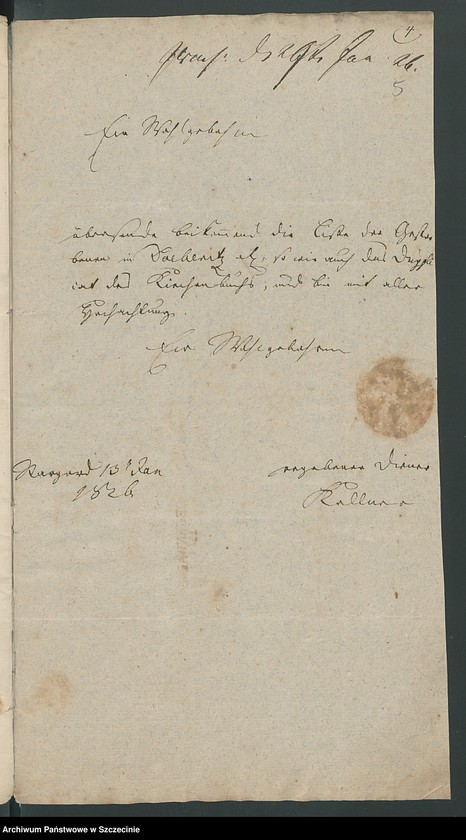 4
praes. d 26st Jan 26.
5
Ew Wohlgeboren
übersende beikommend die Liste der Gestor
benen in Daeberitz etc, so wie auch das Dupli
cat des Kirchenbuchs, und bin mit aller
Hochachtung.
Ew Wohlgeboren
Stargard 13t Jan
1826
ergebener Diener
Kellner
Archiwum Państwowe w Szczecinie